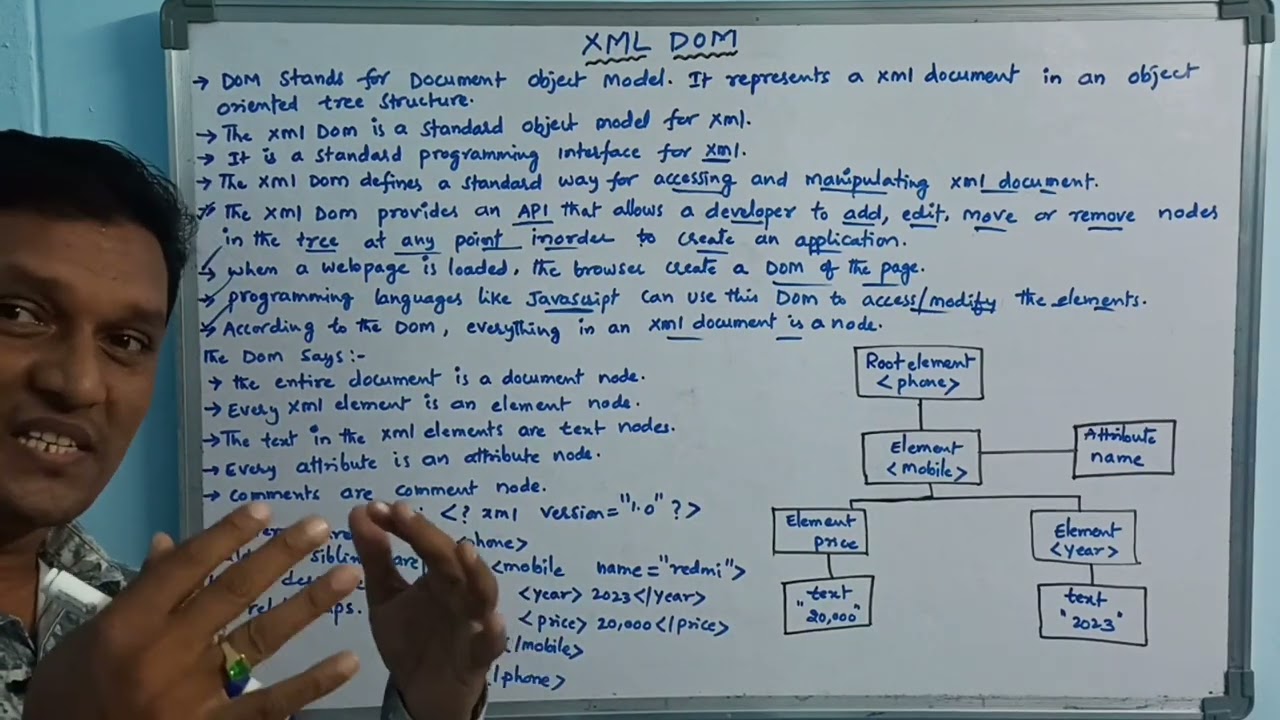 XML DOM
→ DOM Stands for Document object Model. It represents a xml document in an object
oriented tree structure.
→ The xml Dom is a standard object model for xml.
→ It is a standard programming interface for xml.
→ The xml Dom defines a standard way for accessing and manipulating xml document.
→ The xml Dom provides an API that allows a developer to add, edit, move or remove nodes
in the tree at any point inorder to create an application.
→ when a webpage is loaded, the browser create a DOM of the page.
→ programming languages like Javascript can use this Dom to access/modify the elements.
→ According to the DOM, everything in an xml document is a node.
The Dom says:-
→ the entire document is a document node.
→ Every xml element is an element node.
→ The text in the xml elements are text nodes.
→ Every attribute is an attribute node.
→ comments are comment node.
<? xml version="1.0" ?>
<mobile name="redmi">
<year> 2023 </year>
<price> 20,000 </price>
/mobile>
/phone>
Root element
<phone>
Element
<mobile>
Attribute
name
Element
price
Element
<year>
text
"20,000"
text
"2023"